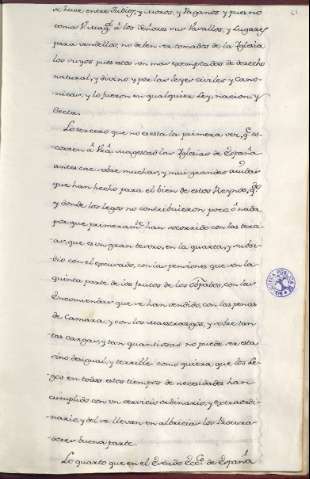 se hace entre Judios, y Moros, y Paganos y pues no
toma V. Magd. à los Señores sus Vasallos, y Lugares
para vendellos, no deben ser tomados de la Iglesia
los suyos pues estos son mas exemptados de derecho
natural, y divino, y por las Leyes Civiles y Cano-
nicas, y lo fueron en qualquiera Ley, nacion, y
Secta.
Lo tercero que no es esta la primera vez, qe. so-
corren à Vra. Magestad las Iglesias de España
antes cae sobre muchas, y muy grandes ayudas
que han hecho para el bien de estos Reynos,
y donde los legos no contribuieron poco, ô nada
por que primeramte. han socorrido con las terci-
as, que es un gran tesoro, en la quarta, y subsi-
dio con el escusado, con las pensiones que son la
quinta parte de los frutos de los Obispados, con las
Encomiendas que se han vendido, con las penas
de Camara, y con los Maestrazgos, y sobre tan
tas cargas, y tan quantiosas no puede ser esta
sino desigual, y terrible como quiera que los Le-
gos en todos estos tiempos de necesidades han
cumplido con un servicio ordinario, y extraordi-
nario, y del se llevan en albricias los Procura-
dores buena parte.
Lo quarto que en el Estado Ecco. de España